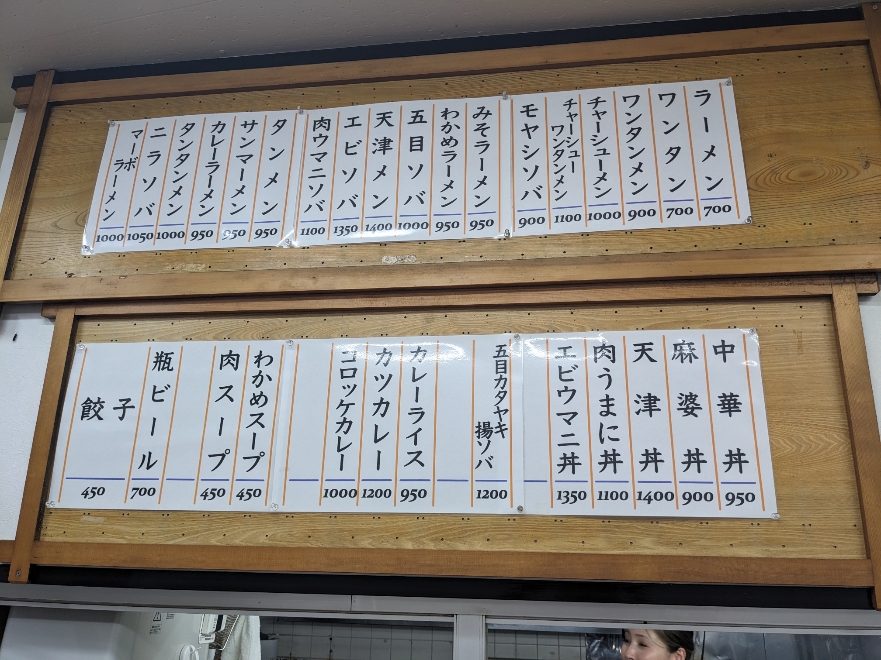 ラーメン 700
ワンタン 700
ワンタンメン 900
チャーシューメン 1000
チャーシューワンタンメン 1100
モヤシソバ 900
みそラーメン 950
わかめラーメン 950
五目ソバ 1000
天津メン 1400
エビソバ 1350
肉ウマニソバ 1100
タンメン 950
サンマーメン 950
カレーラーメン 950
タンタンメン 1000
ニラソバ 1050
マーボラーメン 1000
中華丼 950
麻婆丼 900
天津丼 1400
肉うまに丼 1100
エビウマニ丼 1350
五目カタヤキ揚ソバ 1200
カレーライス 950
カツカレー 1200
コロッケカレー 1000
わかめスープ 450
肉スープ 450
瓶ビール 700
餃子 450